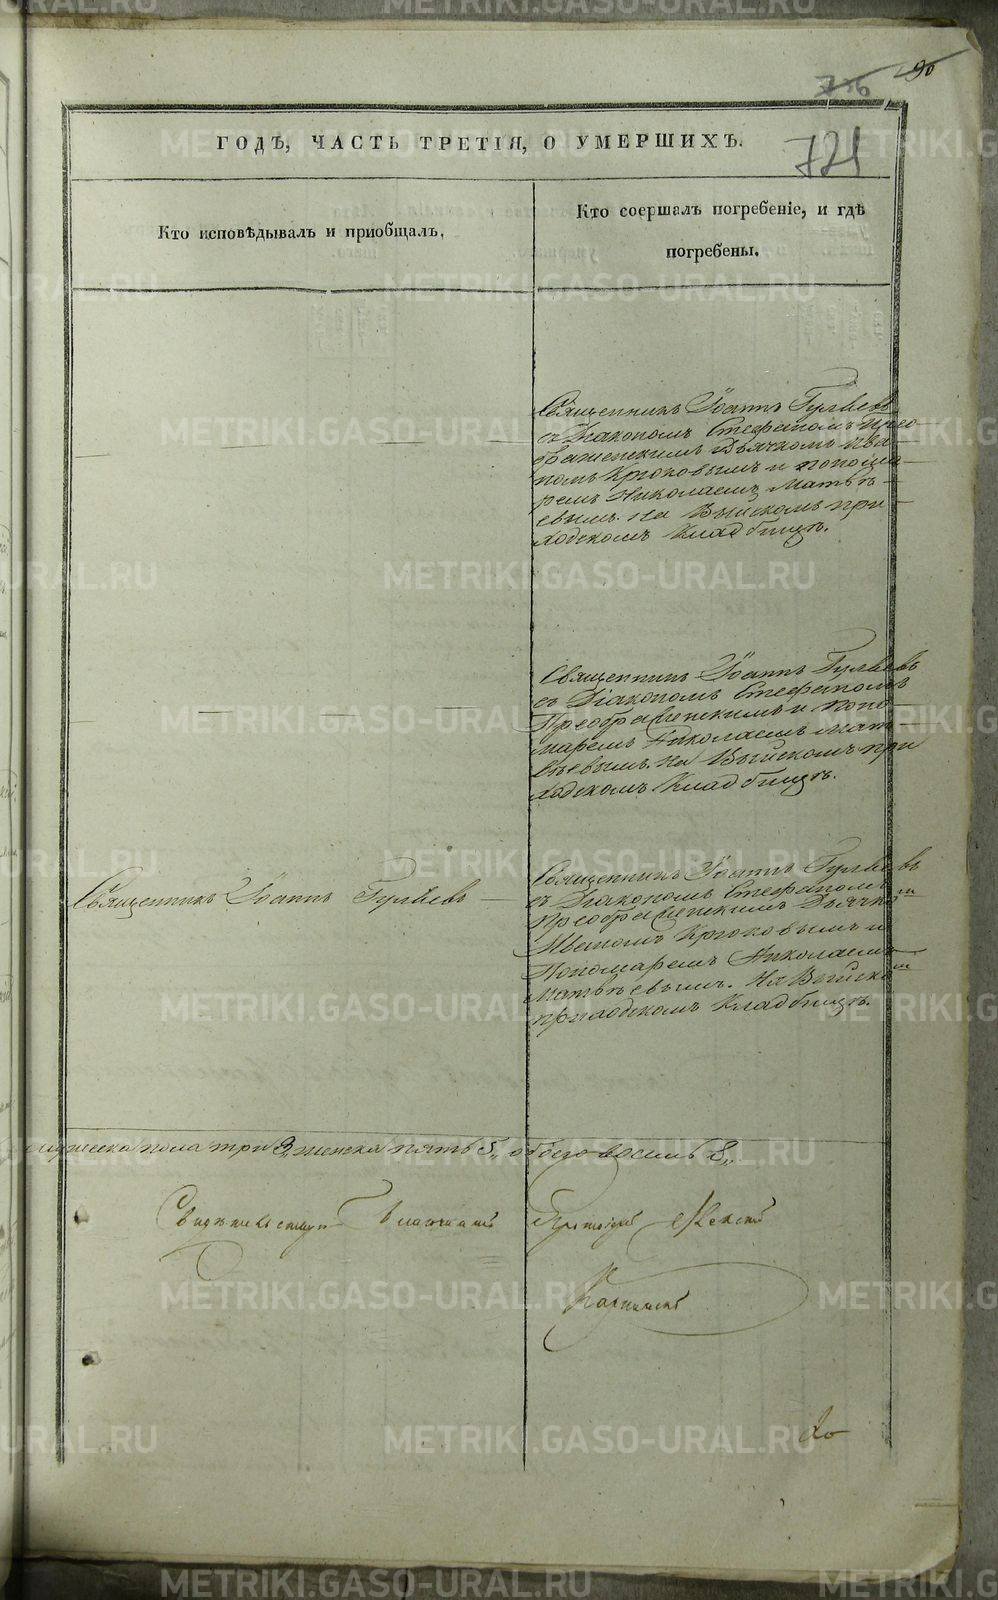 90
726
721
ГОДЪ, ЧАСТЬ ТРЕТІЯ, О УМЕРШИХЪ.
Кто исповѣдывалъ и пріобщалъ.
Кто соершалъ погребеніе, и гдѣ
погребены.
Священникъ Іоаннъ Гуляевъ
съ Діакономъ Стефаномъ Прео
браженскимъ Дьячкомъ Ива
номъ Крюковымъ и понома
ремъ Николаемъ Матвѣ
евымъ. На Выйскомъ при
ходскомъ Кладбищѣ.
Священникъ Іоаннъ Гуляевъ
съ Діакономъ Стефаномъ
Преображенскимъ и поно
маремъ Николаемъ Мат
вѣевымъ. На Выйскомъ при
ходскомъ Кладбищѣ.
Священникъ Іоаннъ Гуляевъ
Священникъ Іоаннъ Гуляевъ
съ Діакономъ Стефаномъ
Преображенскимъ Дьячко
мъ
Иваномъ Крюковымъ и
Пономаремъ Николаемъ
Матвѣевымъ. На Выйско
мъ
приходскомъ Кладбищѣ.
мужеска пола три 3, женска пять 5,, обоего восемь 8,,
Свидѣтельствую Благочинный
METRIKI.GASO-URAL.RU